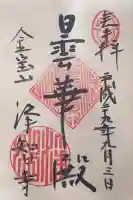 奉拝
平成廿九年九月三日
曇華殿
金宝山
浄智寺